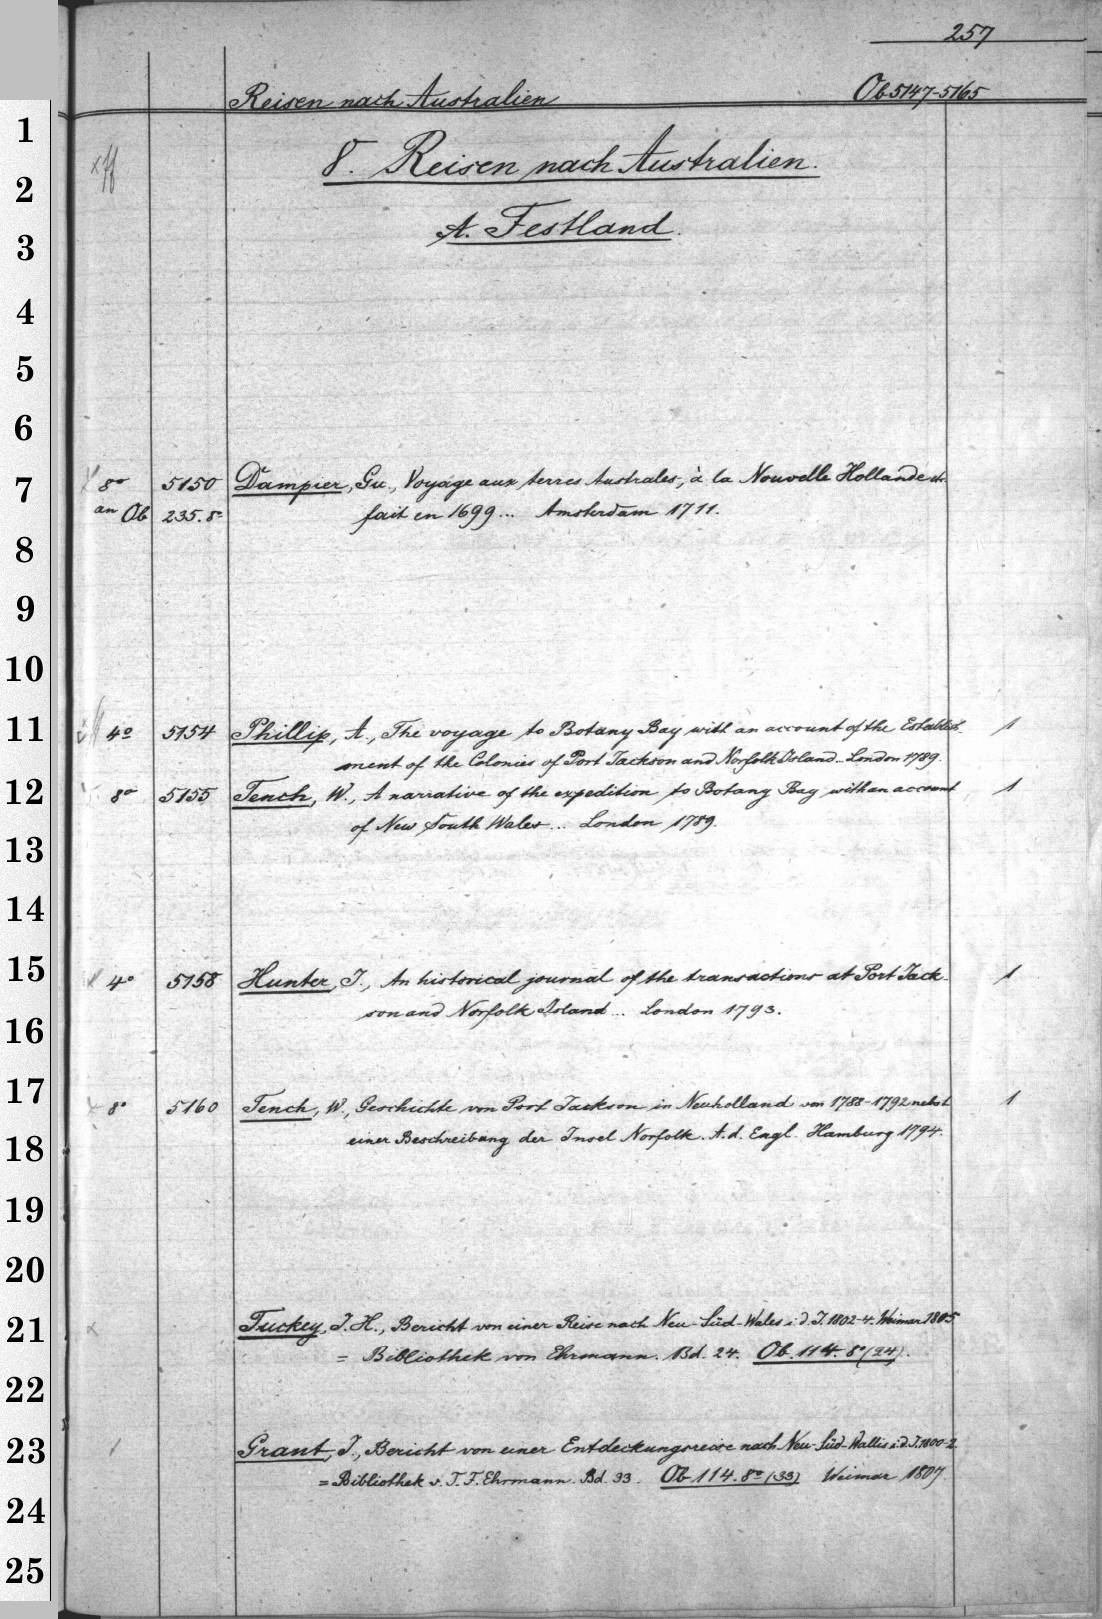 257
Reisen nach Australien Ob 5147-5165
8. Reisen nach Australien.
A. Festland.
8° 5150 Dampier, Gu., Voyage aux terres Australes, à la Nouvelle Hollande etc.
an Ob 235.8° fait en 1699... Amsterdam 1711.
4° 5154 Phillip, A., The voyage to Botany Bay with an account of the Establish- 1
ment of the Colonies of Port Jackson and Norfolk Island... London 1789.
8° 5155 Tench, W., A narrative of the expedition to Botany Bay with an account 1
of New South Wales... London 1789.
4° 5158 Hunter, J., An historical journal of the transactions at Port Jack- 1
son and Norfolk Island... London 1793.
8° 5160 Tench, W., Geschichte von Port Jackson in Neuholland von 1788-1792 nebst 1
einer Beschreibung der Insel Norfolk. A. d. Engl. Hamburg 1794.
Tuckey, J. H., Bericht von einer Reise nach Neu-Süd-Wales i. d. J. 1802-4. Weimar 1805
= Bibliothek von Ehrmann. Bd. 24. Ob. 114. 8° (24).
Grant, J., Bericht von einer Entdeckungsreise nach Neu-Süd-Wallis i. d. J. 1800-2
= Bibliothek v. T. F. Ehrmann. Bd. 33. Ob 114. 8° (33) Weimar 1807.
1
2
3
4
5
6
7
8
9
10
11
12
13
14
15
16
17
18
19
20
21
22
23
24
25